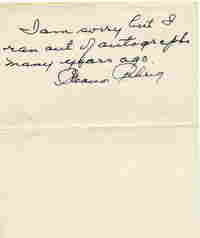 I am sorry but I
ran out of autographs
many years ago.
Eleanor Gehrig